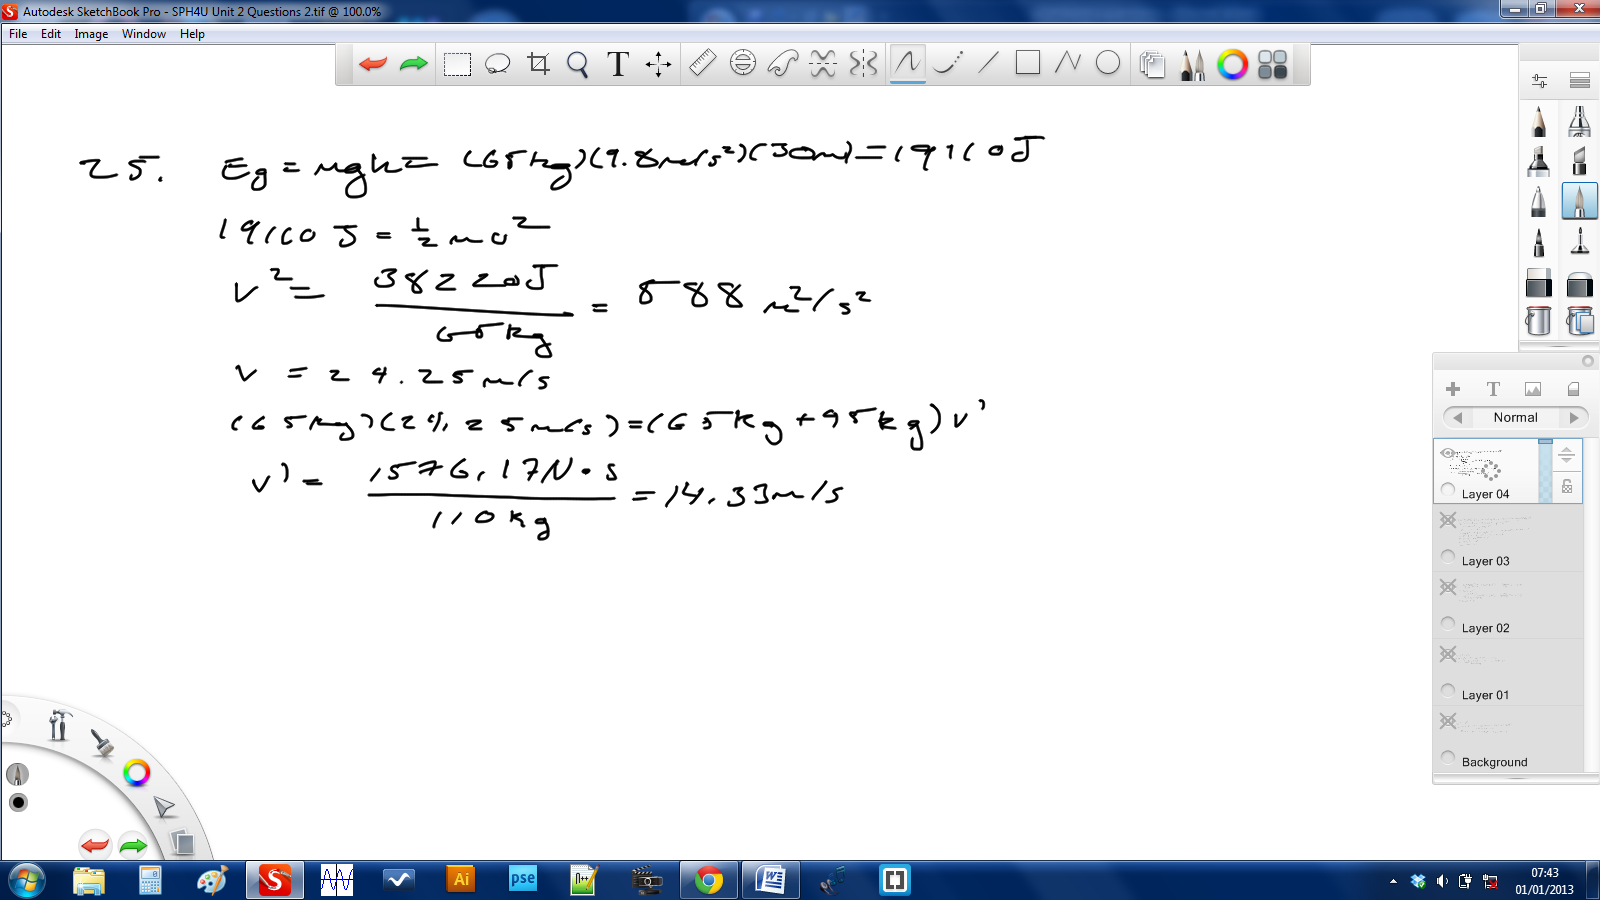 Autodesk SketchBook Pro - SPH4U Unit 2 Questions 2.tif @ 100.0%
File Edit Image Window Help
25. Eg = mgh = (65kg)(9.8m/s²)(30m) = 19110J
19110 J = ½mv²
v² = 38220J / 65kg = 588 m²/s²
v = 24.25m/s
(65kg)(24.25m/s) = (65kg + 45kg)v'
v' = 1576.17N·s / 110kg = 14.33m/s
Normal
Layer 04
Layer 03
Layer 02
Layer 01
Background
Ai
pse
07:43
01/01/2013